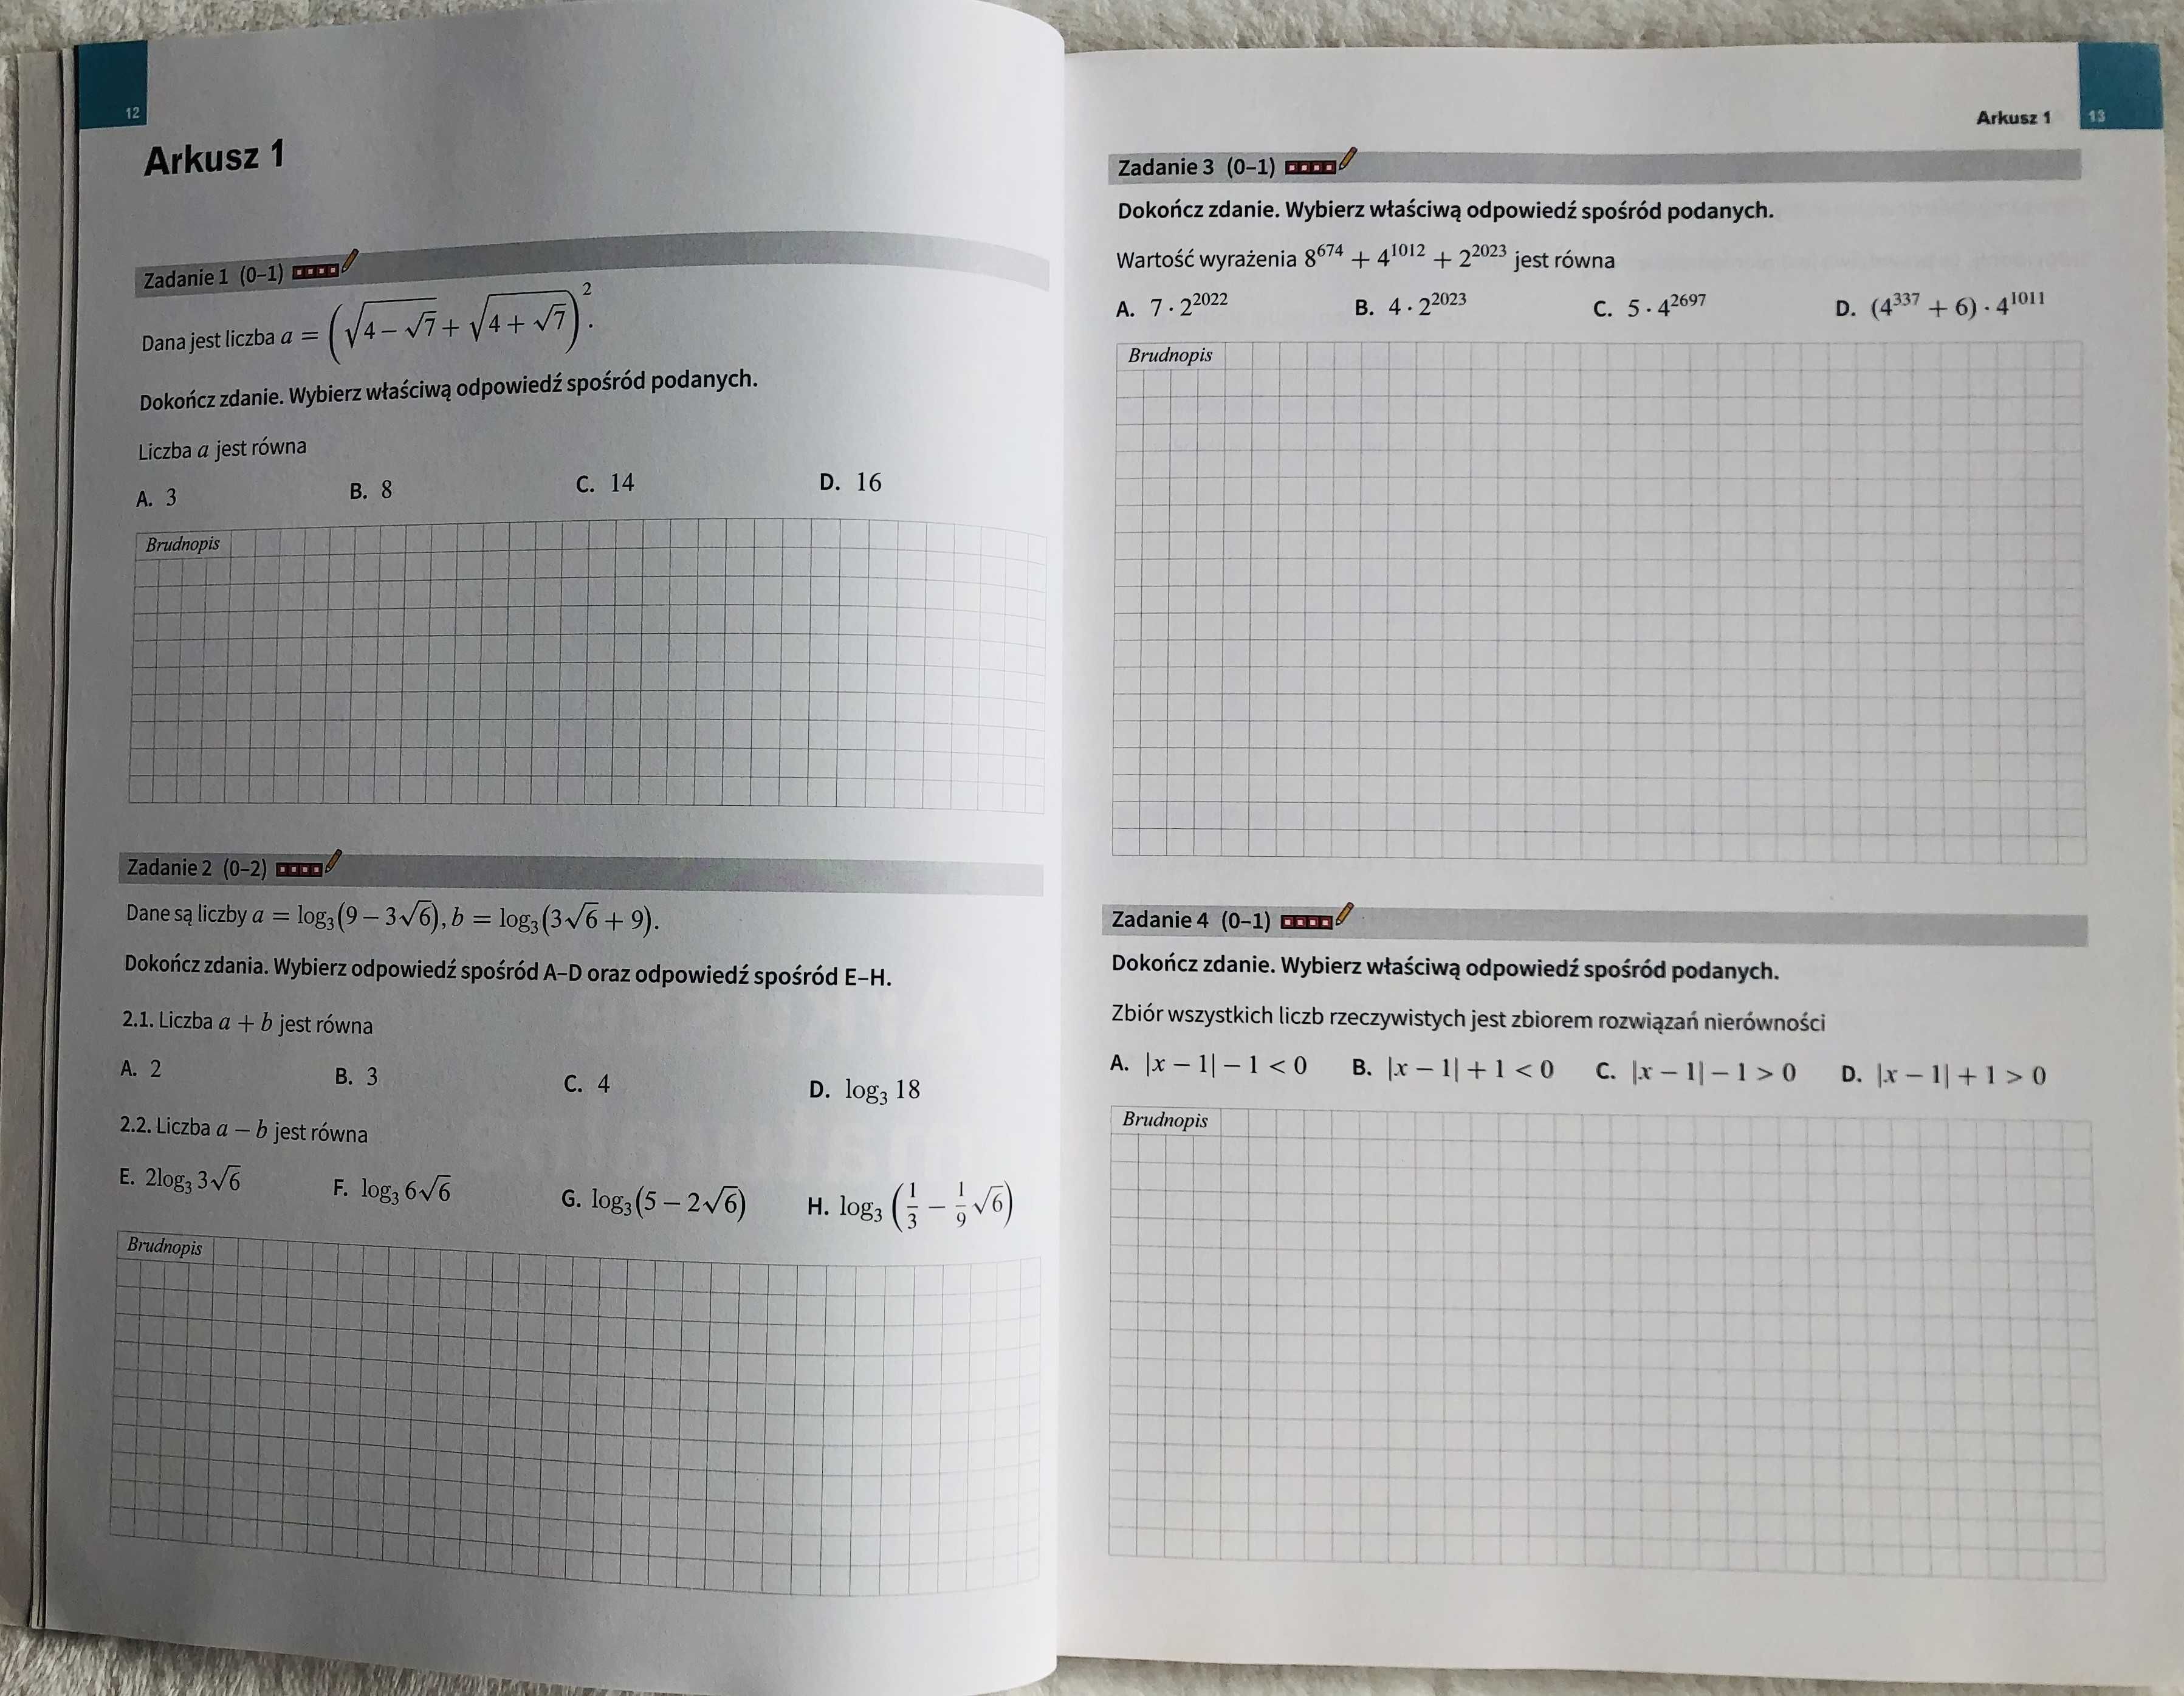 12
Arkusz 1
Zadanie 1 (0–1)
Dana jest liczba a = (√(4 − √7) + √(4 + √7))².
Dokończ zdanie. Wybierz właściwą odpowiedź spośród podanych.
Liczba a jest równa
A. 3 B. 8 C. 14 D. 16
Brudnopis
Zadanie 2 (0–2)
Dane są liczby a = log₃(9 − 3√6), b = log₃(3√6 + 9).
Dokończ zdania. Wybierz odpowiedź spośród A–D oraz odpowiedź spośród E–H.
2.1. Liczba a + b jest równa
A. 2 B. 3 C. 4 D. log₃ 18
2.2. Liczba a − b jest równa
E. 2log₃ 3√6 F. log₃ 6√6 G. log₃(5 − 2√6) H. log₃ (1/3 − 1/9 √6)
Brudnopis
Arkusz 1 13
Zadanie 3 (0–1)
Dokończ zdanie. Wybierz właściwą odpowiedź spośród podanych.
Wartość wyrażenia 8⁶⁷⁴ + 4¹⁰¹² + 2²⁰²³ jest równa
A. 7 · 2²⁰²² B. 4 · 2²⁰²³ C. 5 · 4²⁶⁹⁷ D. (4³³⁷ + 6) · 4¹⁰¹¹
Brudnopis
Zadanie 4 (0–1)
Dokończ zdanie. Wybierz właściwą odpowiedź spośród podanych.
Zbiór wszystkich liczb rzeczywistych jest zbiorem rozwiązań nierówności
A. |x − 1| − 1 < 0 B. |x − 1| + 1 < 0 C. |x − 1| − 1 > 0 D. |x − 1| + 1 > 0
Brudnopis